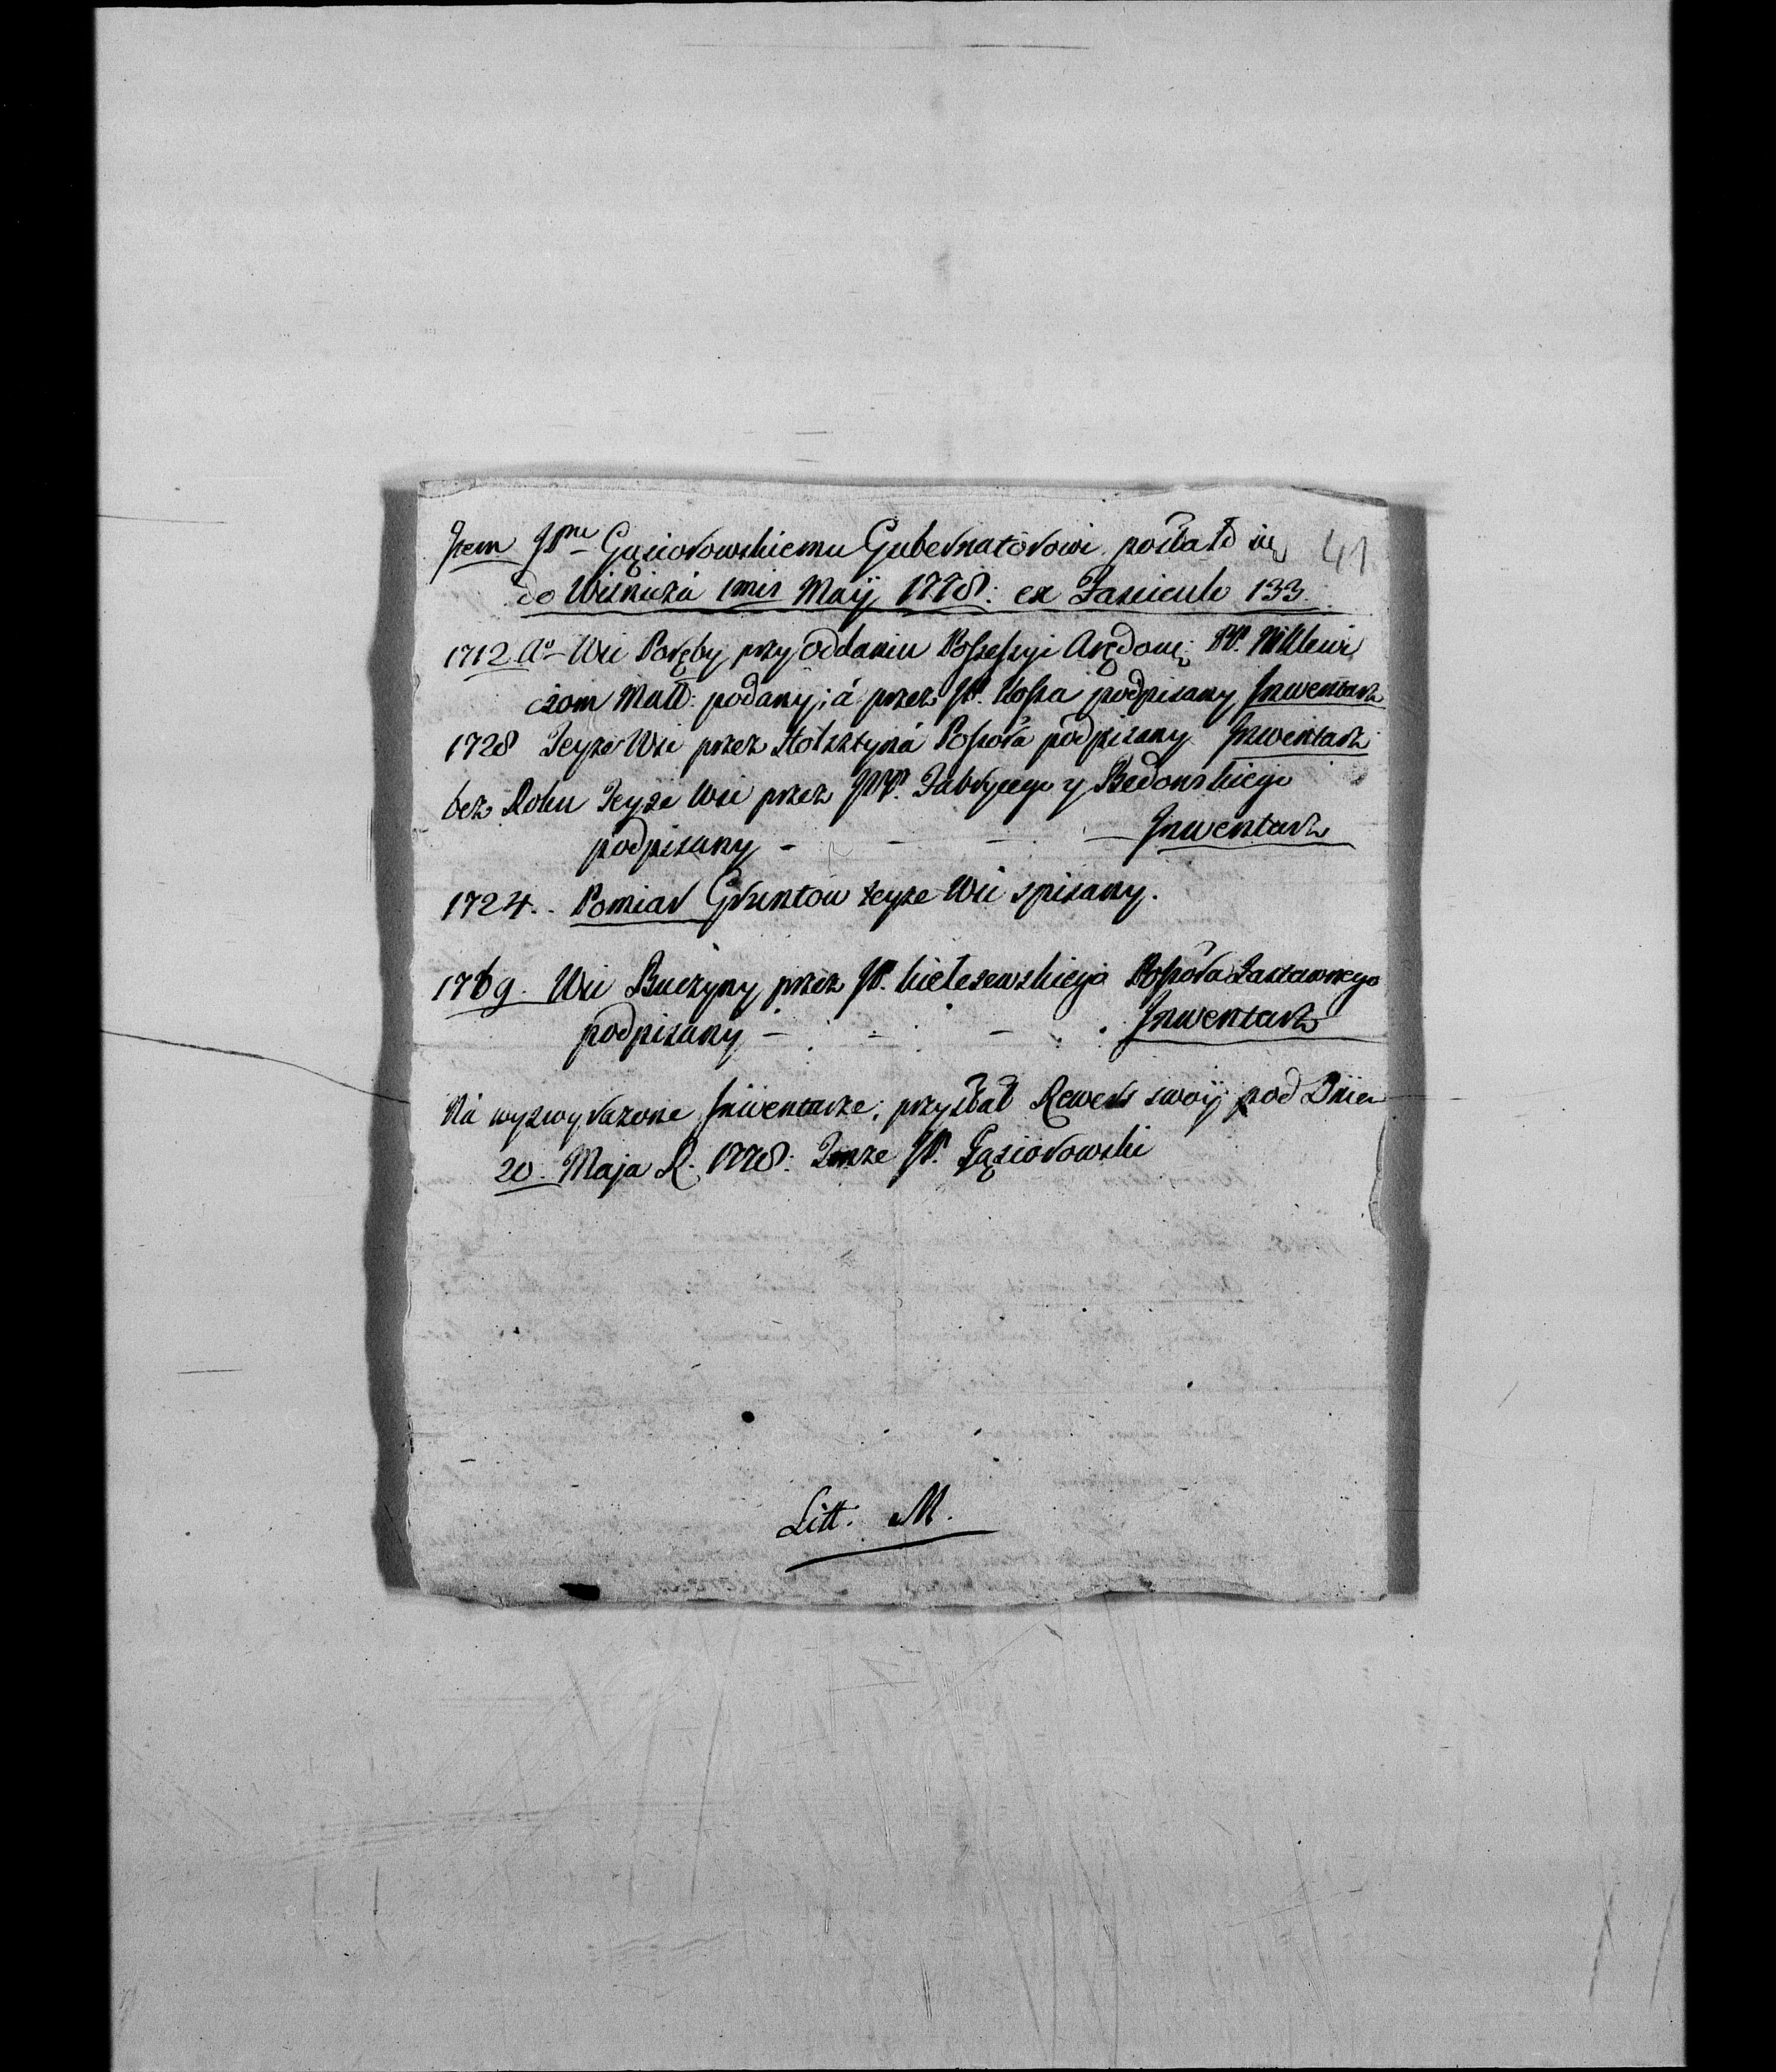 Item JPnu Gąsiorowskiemu Gubernatorowi posłało się 41
do Wiśnicza 1mis Maij 1778: ex Fasciculo 133.
1712 Ao Wsi Poręby przy oddaniu Possessyi Arędowej PP.
czom Małł: podany; á przez JP. podpisany Inwentarz
1728 Teyże Wsi przez Holsztyná Possora podpisany Inwentarz
bez Roku Teyże Wsi przez JPP. Fabrycego y Bedonskiego
podpisany - - - - Inwentarz
1724. Pomiar Gruntow teyże Wsi spisany.
1769. Wsi Buczyny przez JP. Possora Zastawnego
podpisany - - - . Inwentarz
Ná wyżwyrażone Inwentarze; przysłał Rewers swoij pod Dniem
20. Maja R. 1778: Tenże JP. Gąsiorowski
Litt. M.